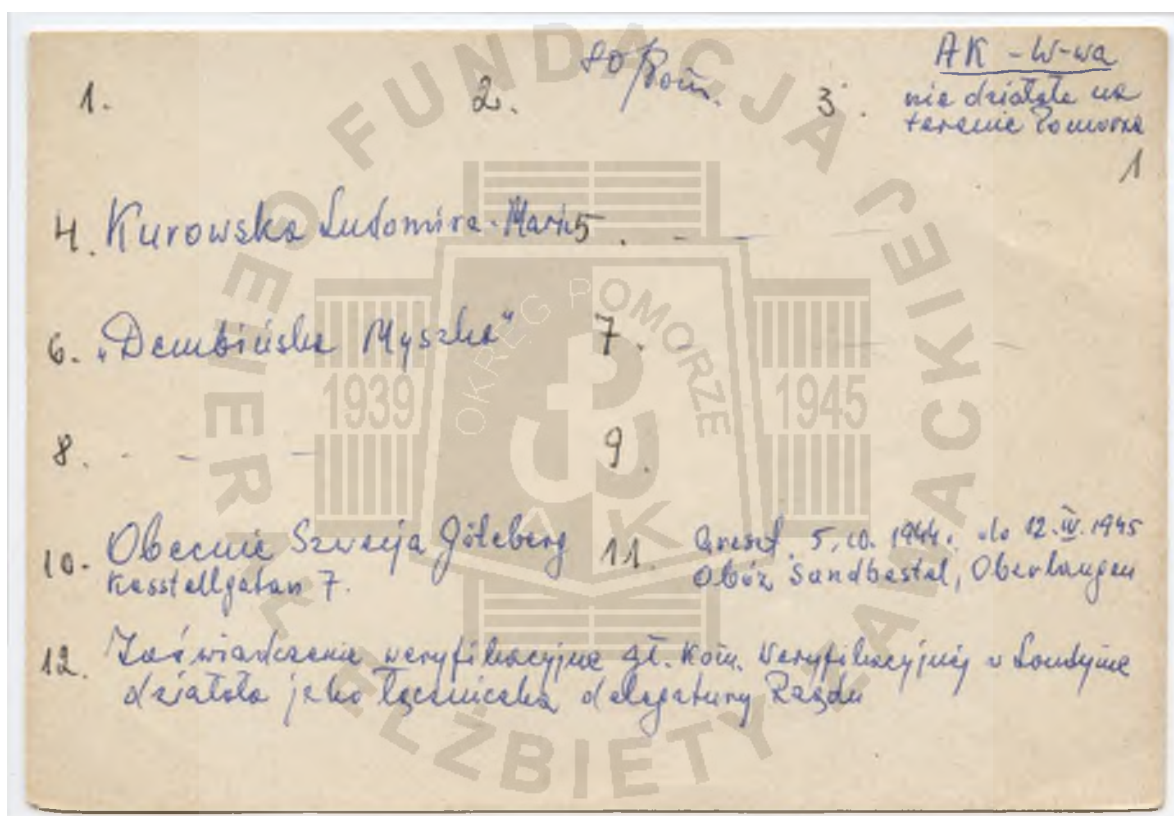 1. 2. 80/Pom. 3. AK - W-wa
nie działała na
terenie Pomorza
1
4. Kurowska Ludomira-Maria 5. - - -
6. "Dembińska Myszka" 7.
8. - - - 9.
10. Obecnie Szwecja Göteborg
Kasstellgatan 7.
11. Areszt. 5.10.1944. do 12.IV.1945
Obóz Sandbostal, Oberlangen
12. Zaświadczenie weryfikacyjne Gł. Kom. Weryfikacyjnej w Londynie
działała jako łączniczka delegatury Rządu
FUNDACJA JENERAŁ ELŻBIETY ZAWACKIEJ
OKRĘG POMORZE
1939
1945
AK